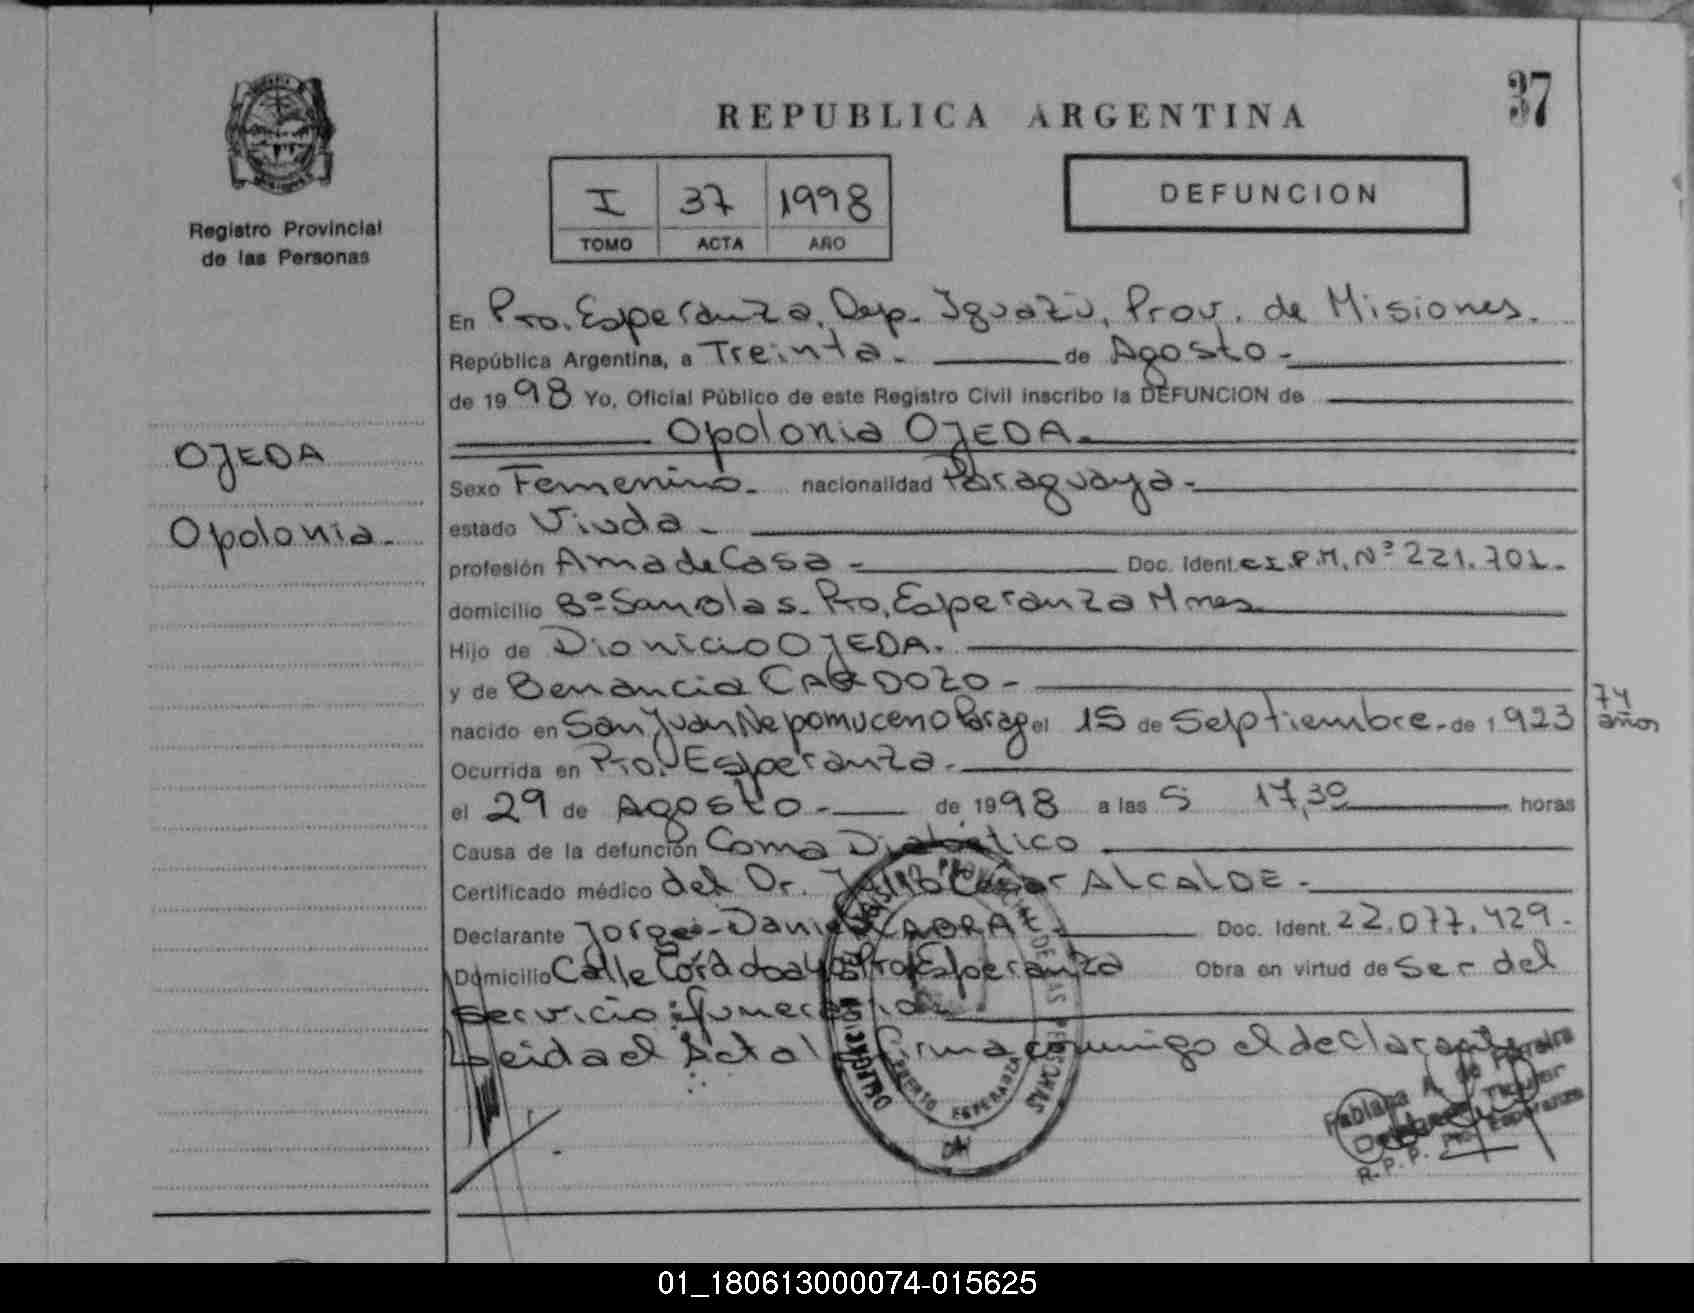 37
REPUBLICA ARGENTINA
I 37 1998
TOMO ACTA AÑO
DEFUNCION
Registro Provincial
de las Personas
OJEDA
Opolonia.
En Pto. Esperanza, Dep. Iguazú, Prov. de Misiones.
República Argentina, a Treinta. de Agosto
de 1998 Yo, Oficial Público de este Registro Civil inscribo la DEFUNCION de
Opolonia OJEDA.
Sexo Femenino. nacionalidad Paraguaya
estado Viuda
profesión Ama de Casa Doc. Ident. C.I.P.M. Nº 221.701.
domicilio Bº Pto. Esperanza Mnes
Hijo de Dionicio OJEDA.
y de Benancia CARDOZO
nacido en San Juan Nepomuceno Parag el 15 de Septiembre de 1923 74 años
Ocurrida en Pto. Esperanza.
el 29 de Agosto de 1998 a las 17,30 horas
Causa de la defunción Coma Diabético
Certificado médico del Dr. Cesar ALCALDE
Declarante Jorge Daniel CABRAL Doc. Ident. 22.077.429.
Domicilio Calle Córdoba Pto Esperanza Obra en virtud de Ser del
servicio funerario
Leida el Acta firma conmigo el declarante
REGISTRO PROVINCIAL DE LAS PERSONAS
DELEGACION
PUERTO ESPERANZA
Fabiana A. de Ferreira
Titular
R.P.P. Pto. Esperanza
01_180613000074-015625